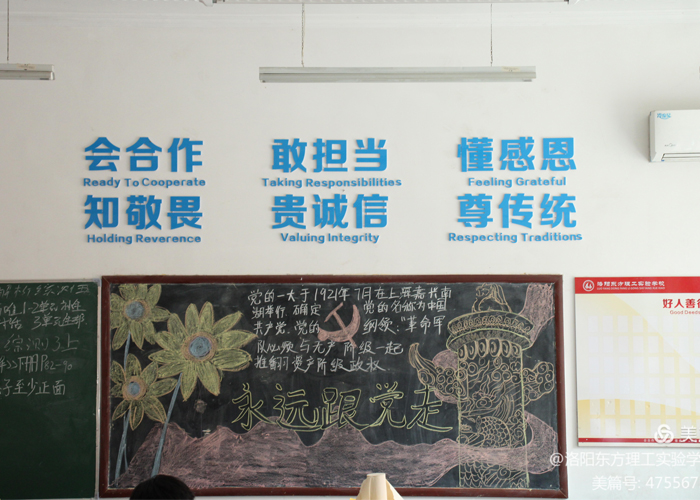 会合作
Ready To Cooperate
敢担当
Taking Responsibilities
懂感恩
Feeling Grateful
知敬畏
Holding Reverence
贵诚信
Valuing Integrity
尊传统
Respecting Traditions
党的一大于1921年7月在上海嘉兴南
湖举行 确定 党的名称为中国
共产党、党的 纲领:"革命军
队必须与无产阶级一起
推翻资产阶级政权
永远跟党走
子至少正面
洛阳东方理工实验学校
好人善
Good Deeds
@洛阳东方理工实验学
美篇号: 475567